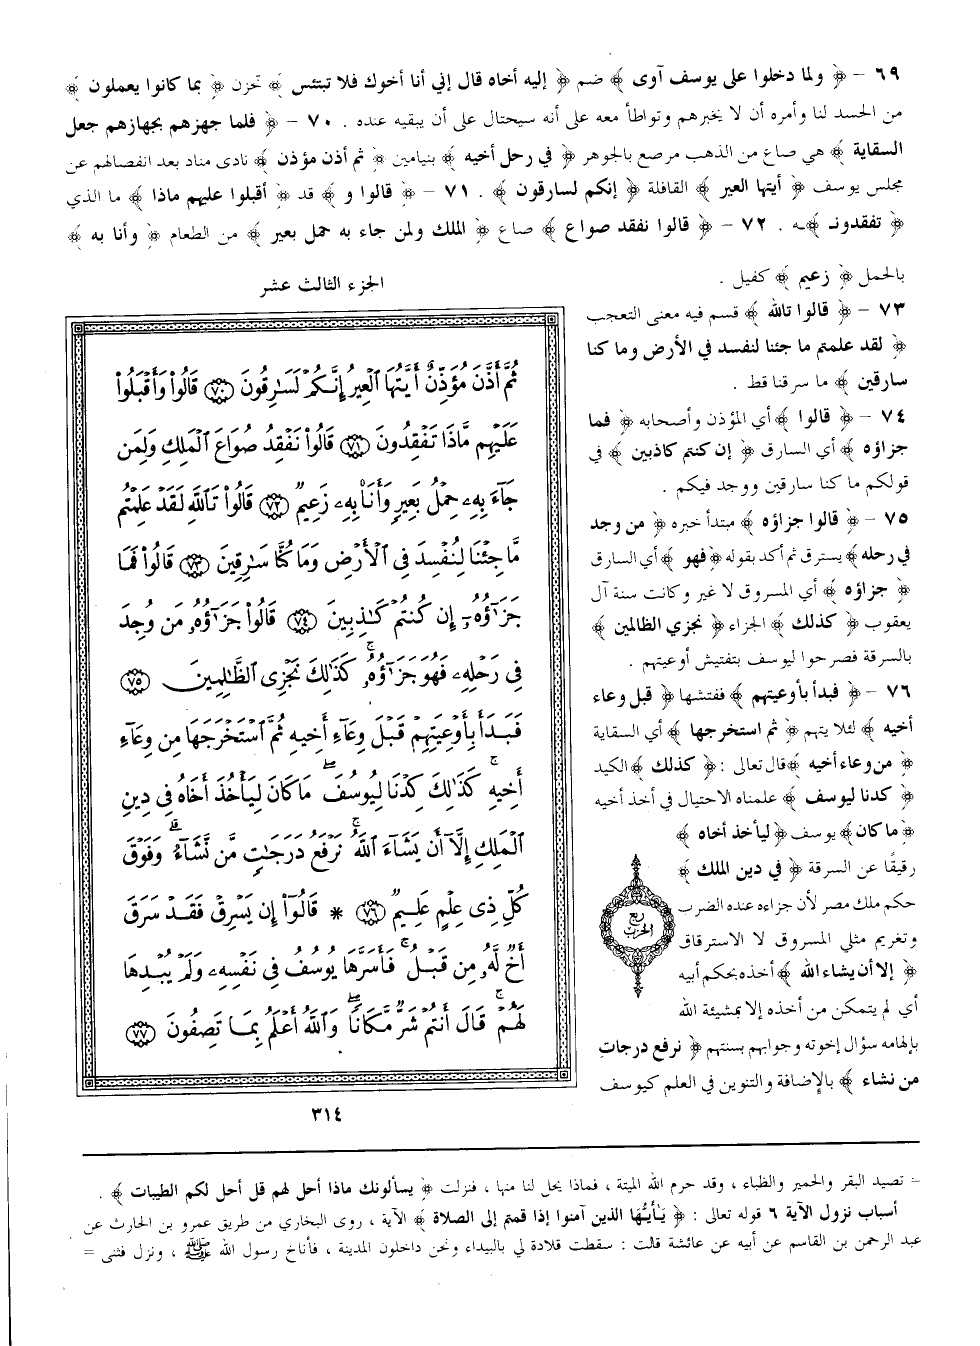 ٦٩ - ﴿ ولما دخلوا على يوسف آوى ﴾ ضم ﴿ إليه أخاه قال إني أنا أخوك فلا تبتئس ﴾ تحزن ﴿ بما كانوا يعملون ﴾
من الحسد لنا وأمره أن لا يخبرهم وتواطأ معه على أنه سيحتال على أن يبقيه عنده . ٧٠ - ﴿ فلما جهزهم بجهازهم جعل
السقاية ﴾ هي صاع من الذهب مرصع بالجوهر ﴿ في رحل أخيه ﴾ بنيامين ﴿ ثم أذن مؤذن ﴾ نادى مناد بعد انفصالهم عن
مجلس يوسف ﴿ أيتها العير ﴾ القافلة ﴿ إنكم لسارقون ﴾ . ٧١ - ﴿ قالوا و ﴾ قد ﴿ أقبلوا عليهم ماذا ﴾ ما الذي
﴿ تفقدونـ ﴾ـه . ٧٢ - ﴿ قالوا نفقد صواع ﴾ صاع ﴿ الملك ولمن جاء به حمل بعير ﴾ من الطعام ﴿ وأنا به ﴾
بالحمل ﴿ زعيم ﴾ كفيل .
٧٣ - ﴿ قالوا تالله ﴾ قسم فيه معنى التعجب
﴿ لقد علمتم ما جئنا لنفسد في الأرض وما كنا
سارقين ﴾ ما سرقنا قط .
٧٤ - ﴿ قالوا ﴾ أي المؤذن وأصحابه ﴿ فما
جزاؤه ﴾ أي السارق ﴿ إن كنتم كاذبين ﴾ في
قولكم ما كنا سارقين ووجد فيكم .
٧٥ - ﴿ قالوا جزاؤه ﴾ مبتدأ خبره ﴿ من وجد
في رحله ﴾ يسترق ثم أكد بقوله ﴿ فهو ﴾ أي السارق
﴿ جزاؤه ﴾ أي المسروق لا غير وكانت سنة آل
يعقوب ﴿ كذلك ﴾ الجزاء ﴿ نجزي الظالمين ﴾
بالسرقة فصرحوا ليوسف بتفتيش أوعيتهم .
٧٦ - ﴿ فبدأ بأوعيتهم ﴾ ففتشها ﴿ قبل وعاء
أخيه ﴾ لئلا يتهم ﴿ ثم استخرجها ﴾ أي السقاية
﴿ من وعاء أخيه ﴾ قال تعالى : ﴿ كذلك ﴾ الكيد
﴿ كدنا ليوسف ﴾ علمناه الاحتيال في أخذ أخيه
﴿ ما كان ﴾ يوسف ﴿ ليأخذ أخاه ﴾
رقيقًا عن السرقة ﴿ في دين الملك ﴾
حكم ملك مصر لأن جزاءه عنده الضرب
وتغريم مثلي المسروق لا الاسترقاق
﴿ إلا أن يشاء الله ﴾ أخذه بحكم أبيه
أي لم يتمكن من أخذه إلا بمشيئة الله
بإلهامه سؤال إخوته وجوابهم بسنتهم ﴿ نرفع درجات
من نشاء ﴾ بالإضافة والتنوين في العلم كيوسف
ربع
الحزب
الجزء الثالث عشر
ثُمَّ أَذَّنَ مُؤَذِّنٌ أَيَّتُهَا ٱلْعِيرُ إِنَّكُمْ لَسَٰرِقُونَ ٧٠ قَالُوا۟ وَأَقْبَلُوا۟
عَلَيْهِم مَّاذَا تَفْقِدُونَ ٧١ قَالُوا۟ نَفْقِدُ صُوَاعَ ٱلْمَلِكِ وَلِمَن
جَآءَ بِهِۦ حِمْلُ بَعِيرٍ وَأَنَا۠ بِهِۦ زَعِيمٌ ٧٢ قَالُوا۟ تَٱللَّهِ لَقَدْ عَلِمْتُم
مَّا جِئْنَا لِنُفْسِدَ فِى ٱلْأَرْضِ وَمَا كُنَّا سَٰرِقِينَ ٧٣ قَالُوا۟ فَمَا
جَزَٰٓؤُهُۥٓ إِن كُنتُمْ كَٰذِبِينَ ٧٤ قَالُوا۟ جَزَٰٓؤُهُۥ مَن وُجِدَ
فِى رَحْلِهِۦ فَهُوَ جَزَٰٓؤُهُۥ ۚ كَذَٰلِكَ نَجْزِى ٱلظَّٰلِمِينَ ٧٥
فَبَدَأَ بِأَوْعِيَتِهِمْ قَبْلَ وِعَآءِ أَخِيهِ ثُمَّ ٱسْتَخْرَجَهَا مِن وِعَآءِ
أَخِيهِ ۚ كَذَٰلِكَ كِدْنَا لِيُوسُفَ ۖ مَا كَانَ لِيَأْخُذَ أَخَاهُ فِى دِينِ
ٱلْمَلِكِ إِلَّآ أَن يَشَآءَ ٱللَّهُ ۚ نَرْفَعُ دَرَجَٰتٍ مَّن نَّشَآءُ ۗ وَفَوْقَ
كُلِّ ذِى عِلْمٍ عَلِيمٌ ٧٦ * قَالُوٓا۟ إِن يَسْرِقْ فَقَدْ سَرَقَ
أَخٌ لَّهُۥ مِن قَبْلُ ۚ فَأَسَرَّهَا يُوسُفُ فِى نَفْسِهِۦ وَلَمْ يُبْدِهَا
لَهُمْ ۚ قَالَ أَنتُمْ شَرٌّ مَّكَانًا ۖ وَٱللَّهُ أَعْلَمُ بِمَا تَصِفُونَ ٧٧
٣١٤
= تصيد البقر والحمير والظباء ، وقد حرم الله الميتة ، فماذا يحل لنا منها ، فنزلت ﴿ يسألونك ماذا أحل لهم قل أحل لكم الطيبات ﴾ .
أسباب نزول الآية ٦ قوله تعالى : ﴿ يٰأيها الذين آمنوا إذا قمتم إلى الصلاة ﴾ الآية ، روى البخاري من طريق عمرو بن الحارث عن
عبد الرحمن بن القاسم عن أبيه عن عائشة قالت : سقطت قلادة لي بالبيداء ونحن داخلون المدينة ، فأناخ رسول الله ﷺ ، ونزل فثنى =